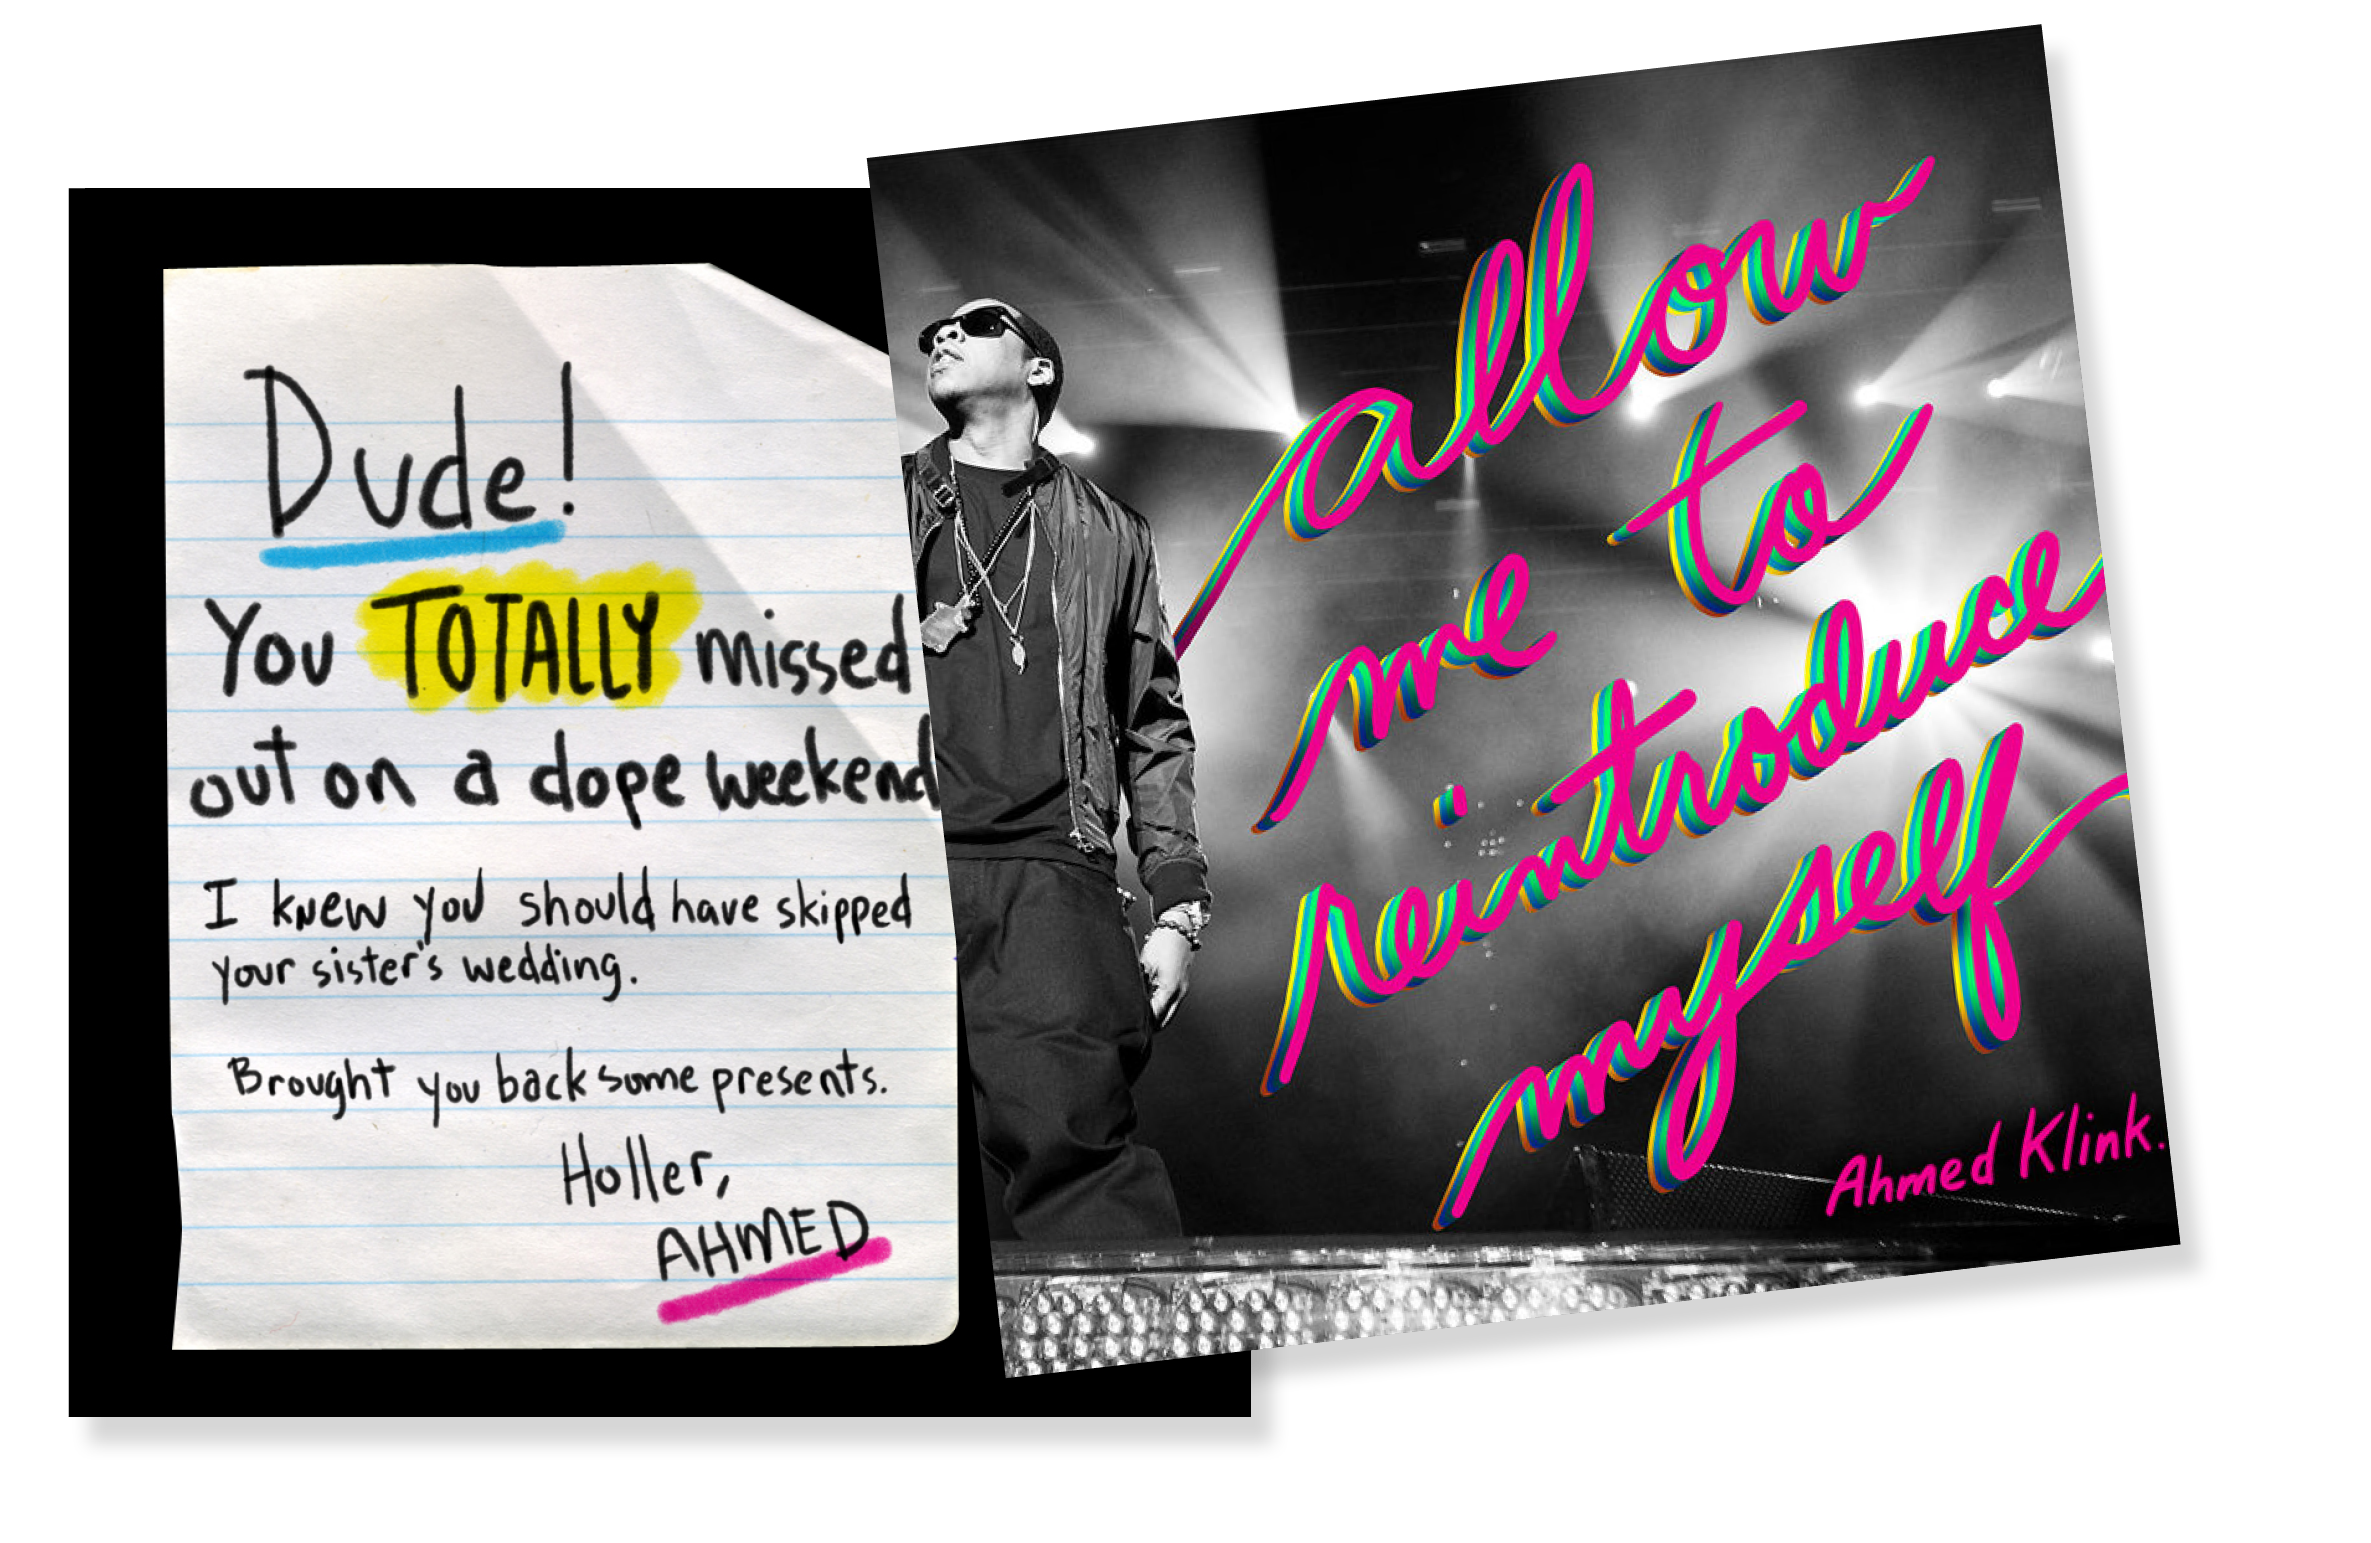 Dude!
You TOTALLY missed
out on a dope weekend
I knew you should have skipped
your sister's wedding.
Brought you back some presents.
Holler,
AHMED
allow
me to
reintroduce
myself
Ahmed Klink.